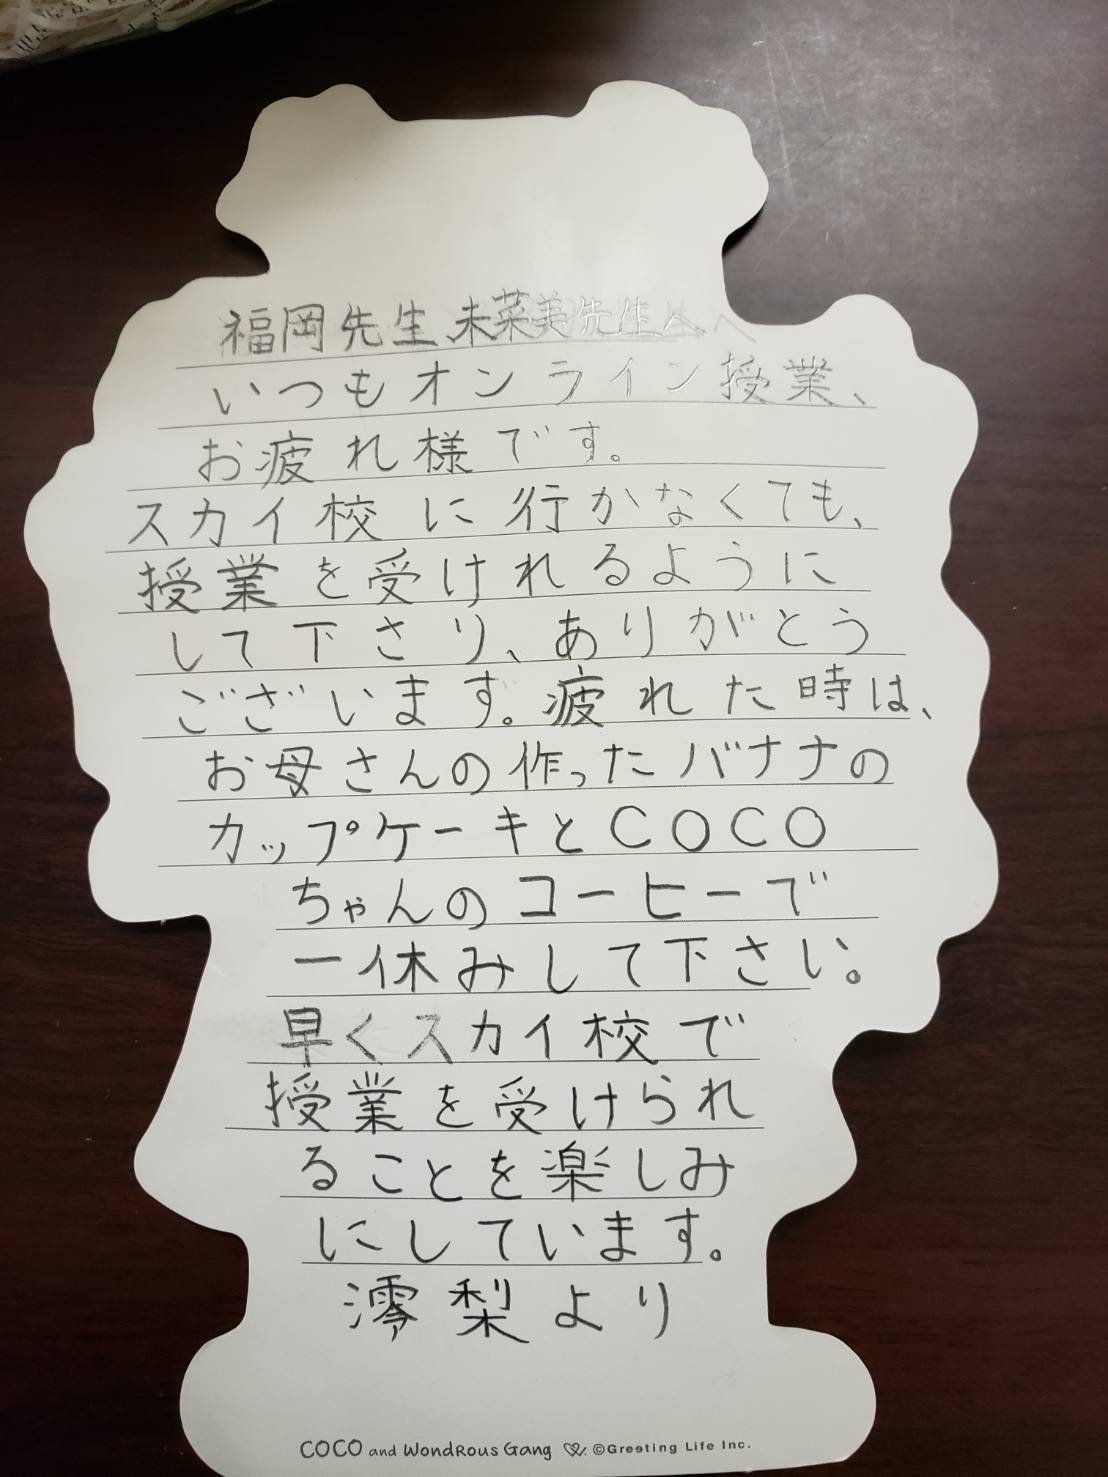 福岡先生、未菜美先生へ
いつもオンライン授業、
お疲れ様です。
スカイ校に行かなくても、
授業を受けれるように
して下さり、ありがとう
ございます。疲れた時は、
お母さんの作ったバナナの
カップケーキとCOCO
ちゃんのコーヒーで
一休みして下さい。
早くスカイ校で
授業を受けられ
ることを楽しみ
にしています。
澪梨より
COCO and WondRous Gang ©Greeting Life Inc.